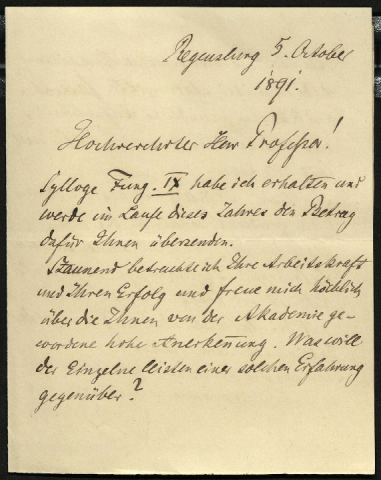 Regensburg 5. October
1891.
Hochverehrter Herr Professor!
Sylloge Fung. IX habe ich erhalten und
werde im Laufe dieses Jahres den Betrag
dafür Ihnen übersenden.
Staunend betrachte ich Ihre Arbeitskraft
und Ihren Erfolg und freue mich höchlich
über die Ihnen von der Akademie ge-
wordene hohe Anerkennung. Was will
der Einzelne leisten einer solchen Erfahrung
gegenüber?